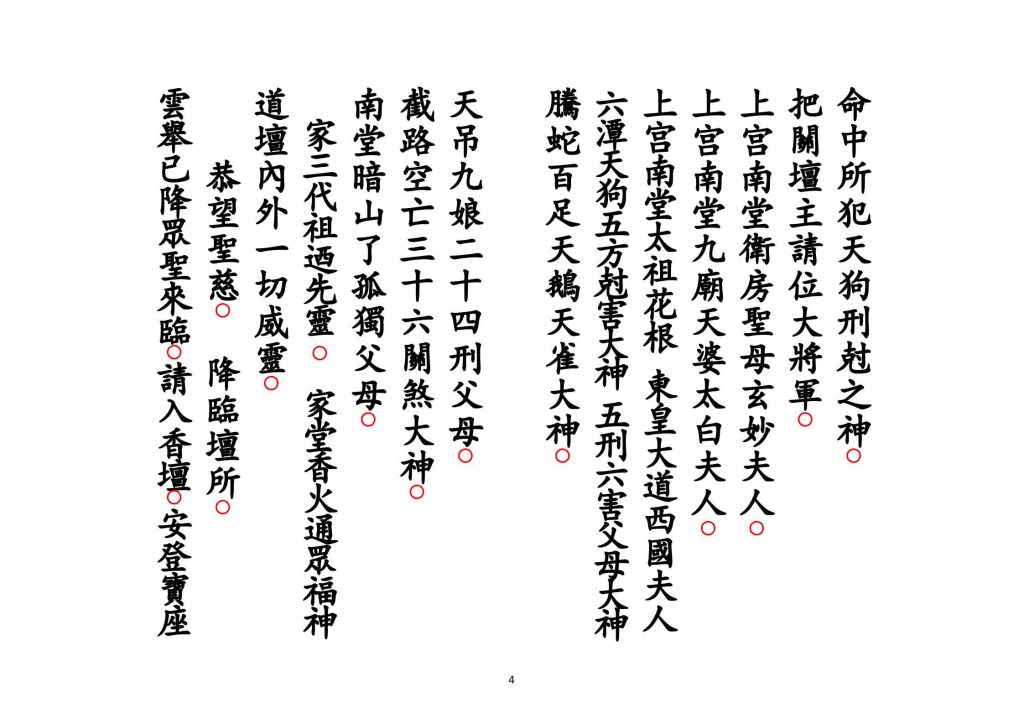 命中所犯天狗刑尅之神○
把關壇主請位大將軍○
上宮南堂衛房聖母玄妙夫人○
上宮南堂九廟天婆太白夫人○
上宮南堂太祖花根 東皇大道西國夫人
六潭天狗五方尅害大神 五刑六害父母大神
騰蛇百足天鵝天雀大神○
天吊九娘二十四刑父母○
截路空亡三十六關煞大神○
南堂暗山了孤獨父母○
家三代祖迺先靈○ 家堂香火通眾福神
道壇內外一切威靈○
恭望聖慈○ 降臨壇所○
雲轝已降眾聖來臨○請入香壇○安登寶座
4